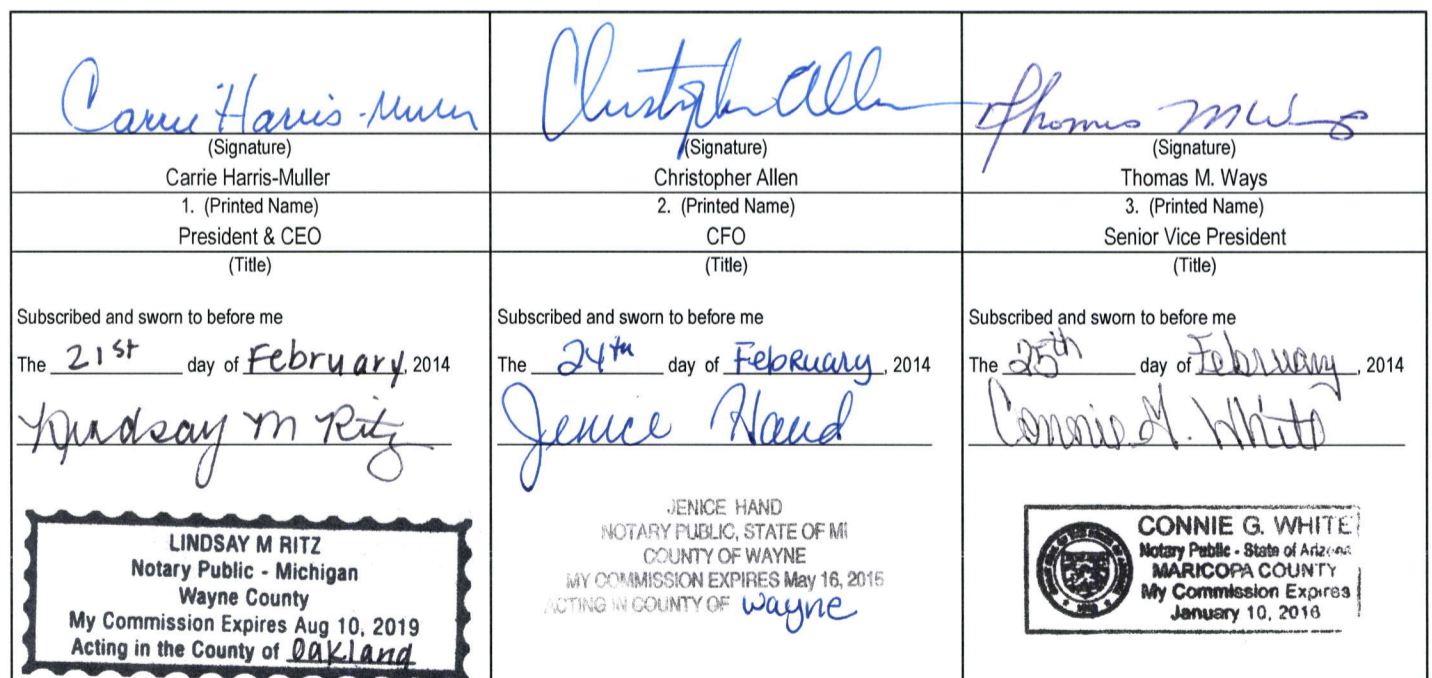 Carrie Harris-Muller
(Signature)
Carrie Harris-Muller
1. (Printed Name)
President & CEO
(Title)
Subscribed and sworn to before me
The 21st day of February, 2014
Lindsay M Ritz
LINDSAY M RITZ
Notary Public - Michigan
Wayne County
My Commission Expires Aug 10, 2019
Acting in the County of Oakland
Christopher Allen
(Signature)
Christopher Allen
2. (Printed Name)
CFO
(Title)
Subscribed and sworn to before me
The 24th day of February, 2014
Jenice Hand
JENICE HAND
NOTARY PUBLIC, STATE OF MI
COUNTY OF WAYNE
MY COMMISSION EXPIRES May 16, 2015
ACTING IN COUNTY OF Wayne
Thomas M Ways
(Signature)
Thomas M. Ways
3. (Printed Name)
Senior Vice President
(Title)
Subscribed and sworn to before me
The 25th day of February, 2014
Connie G. White
CONNIE G. WHITE
Notary Public - State of Arizona
MARICOPA COUNTY
My Commission Expires
January 10, 2016